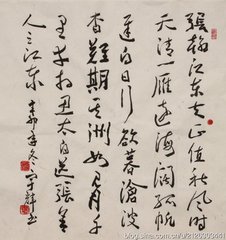 張翰江东去正值秋風时
天清一雁遠海闊孤帆
遲白日行欲暮滄波
杳難期吴洲如見月千
里幸相思太白送張舍
人之江東
辛卯年冬
书